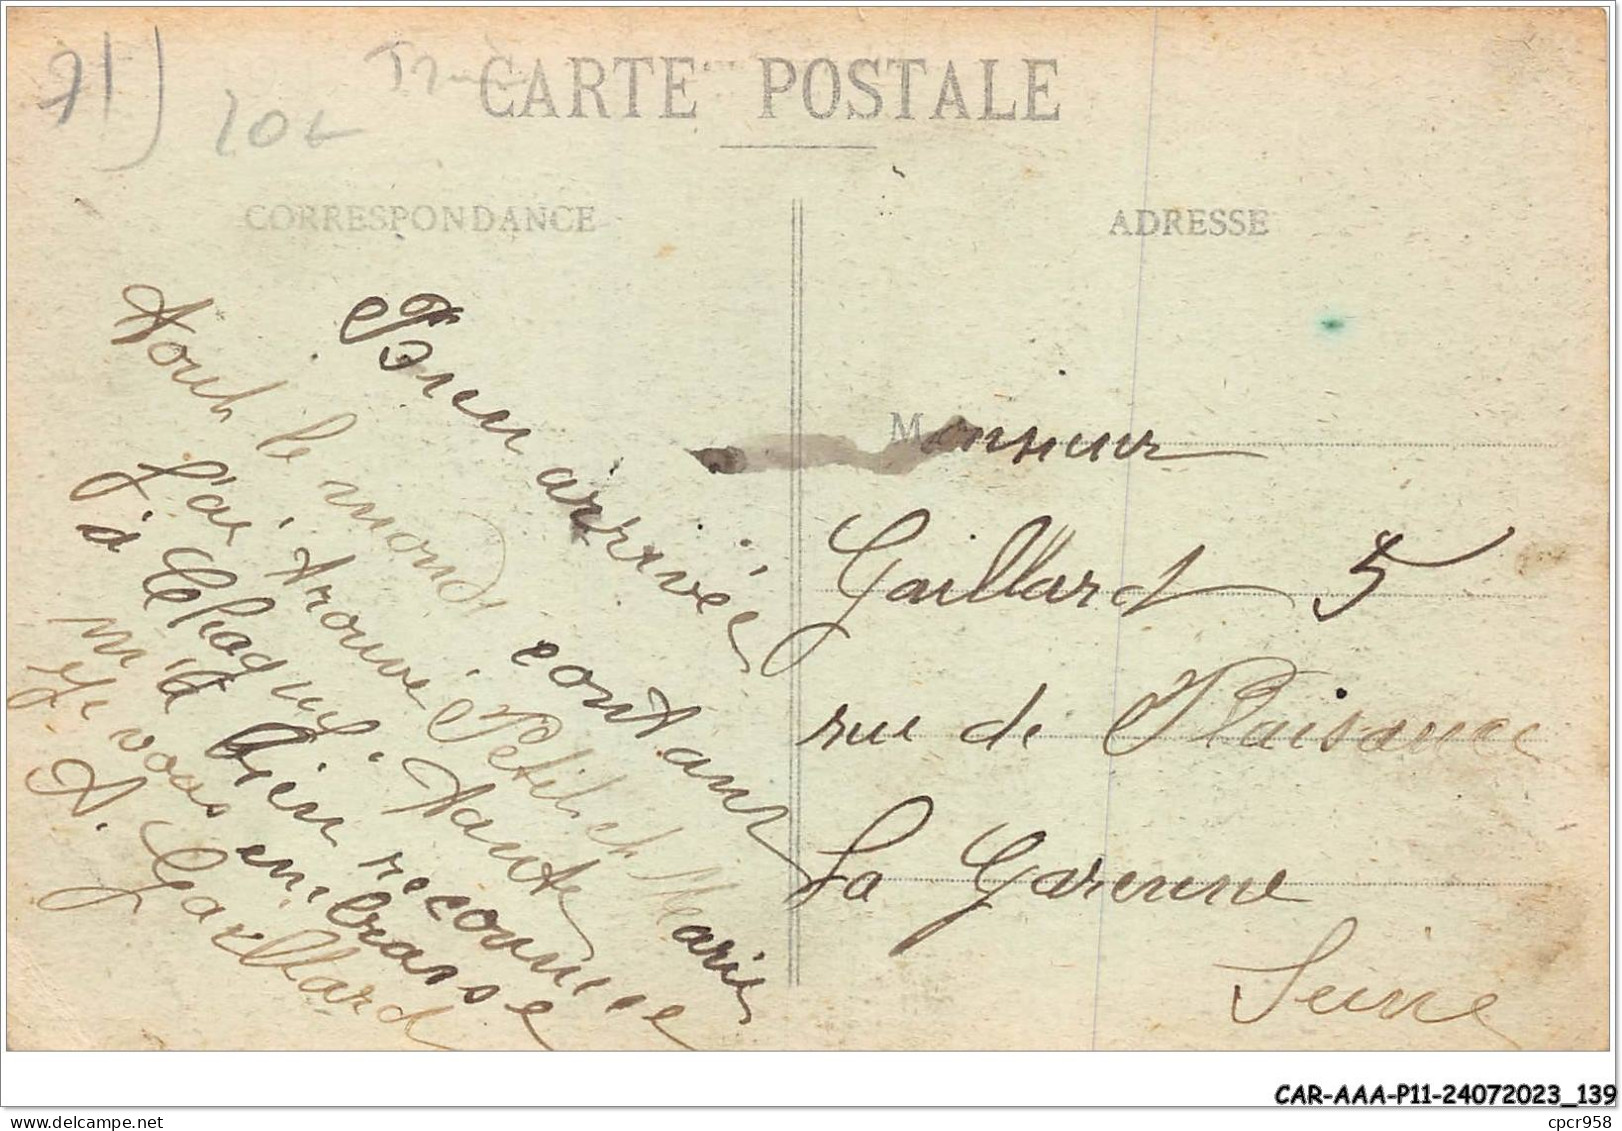 71)
20L
CARTE POSTALE
CORRESPONDANCE
ADRESSE
Bien arrivée
Tout le monde contant
J'ai trouvé Petit et Marie
à Chaqui tante
m'a bien reconnue
Je vous embrasse
A. Gaillard
Monsieur
Gaillard 5
rue de Plaisance
La Garenne
Seine
CAR-AAA-P11-24072023_139
www.delcampe.net
cpcr958